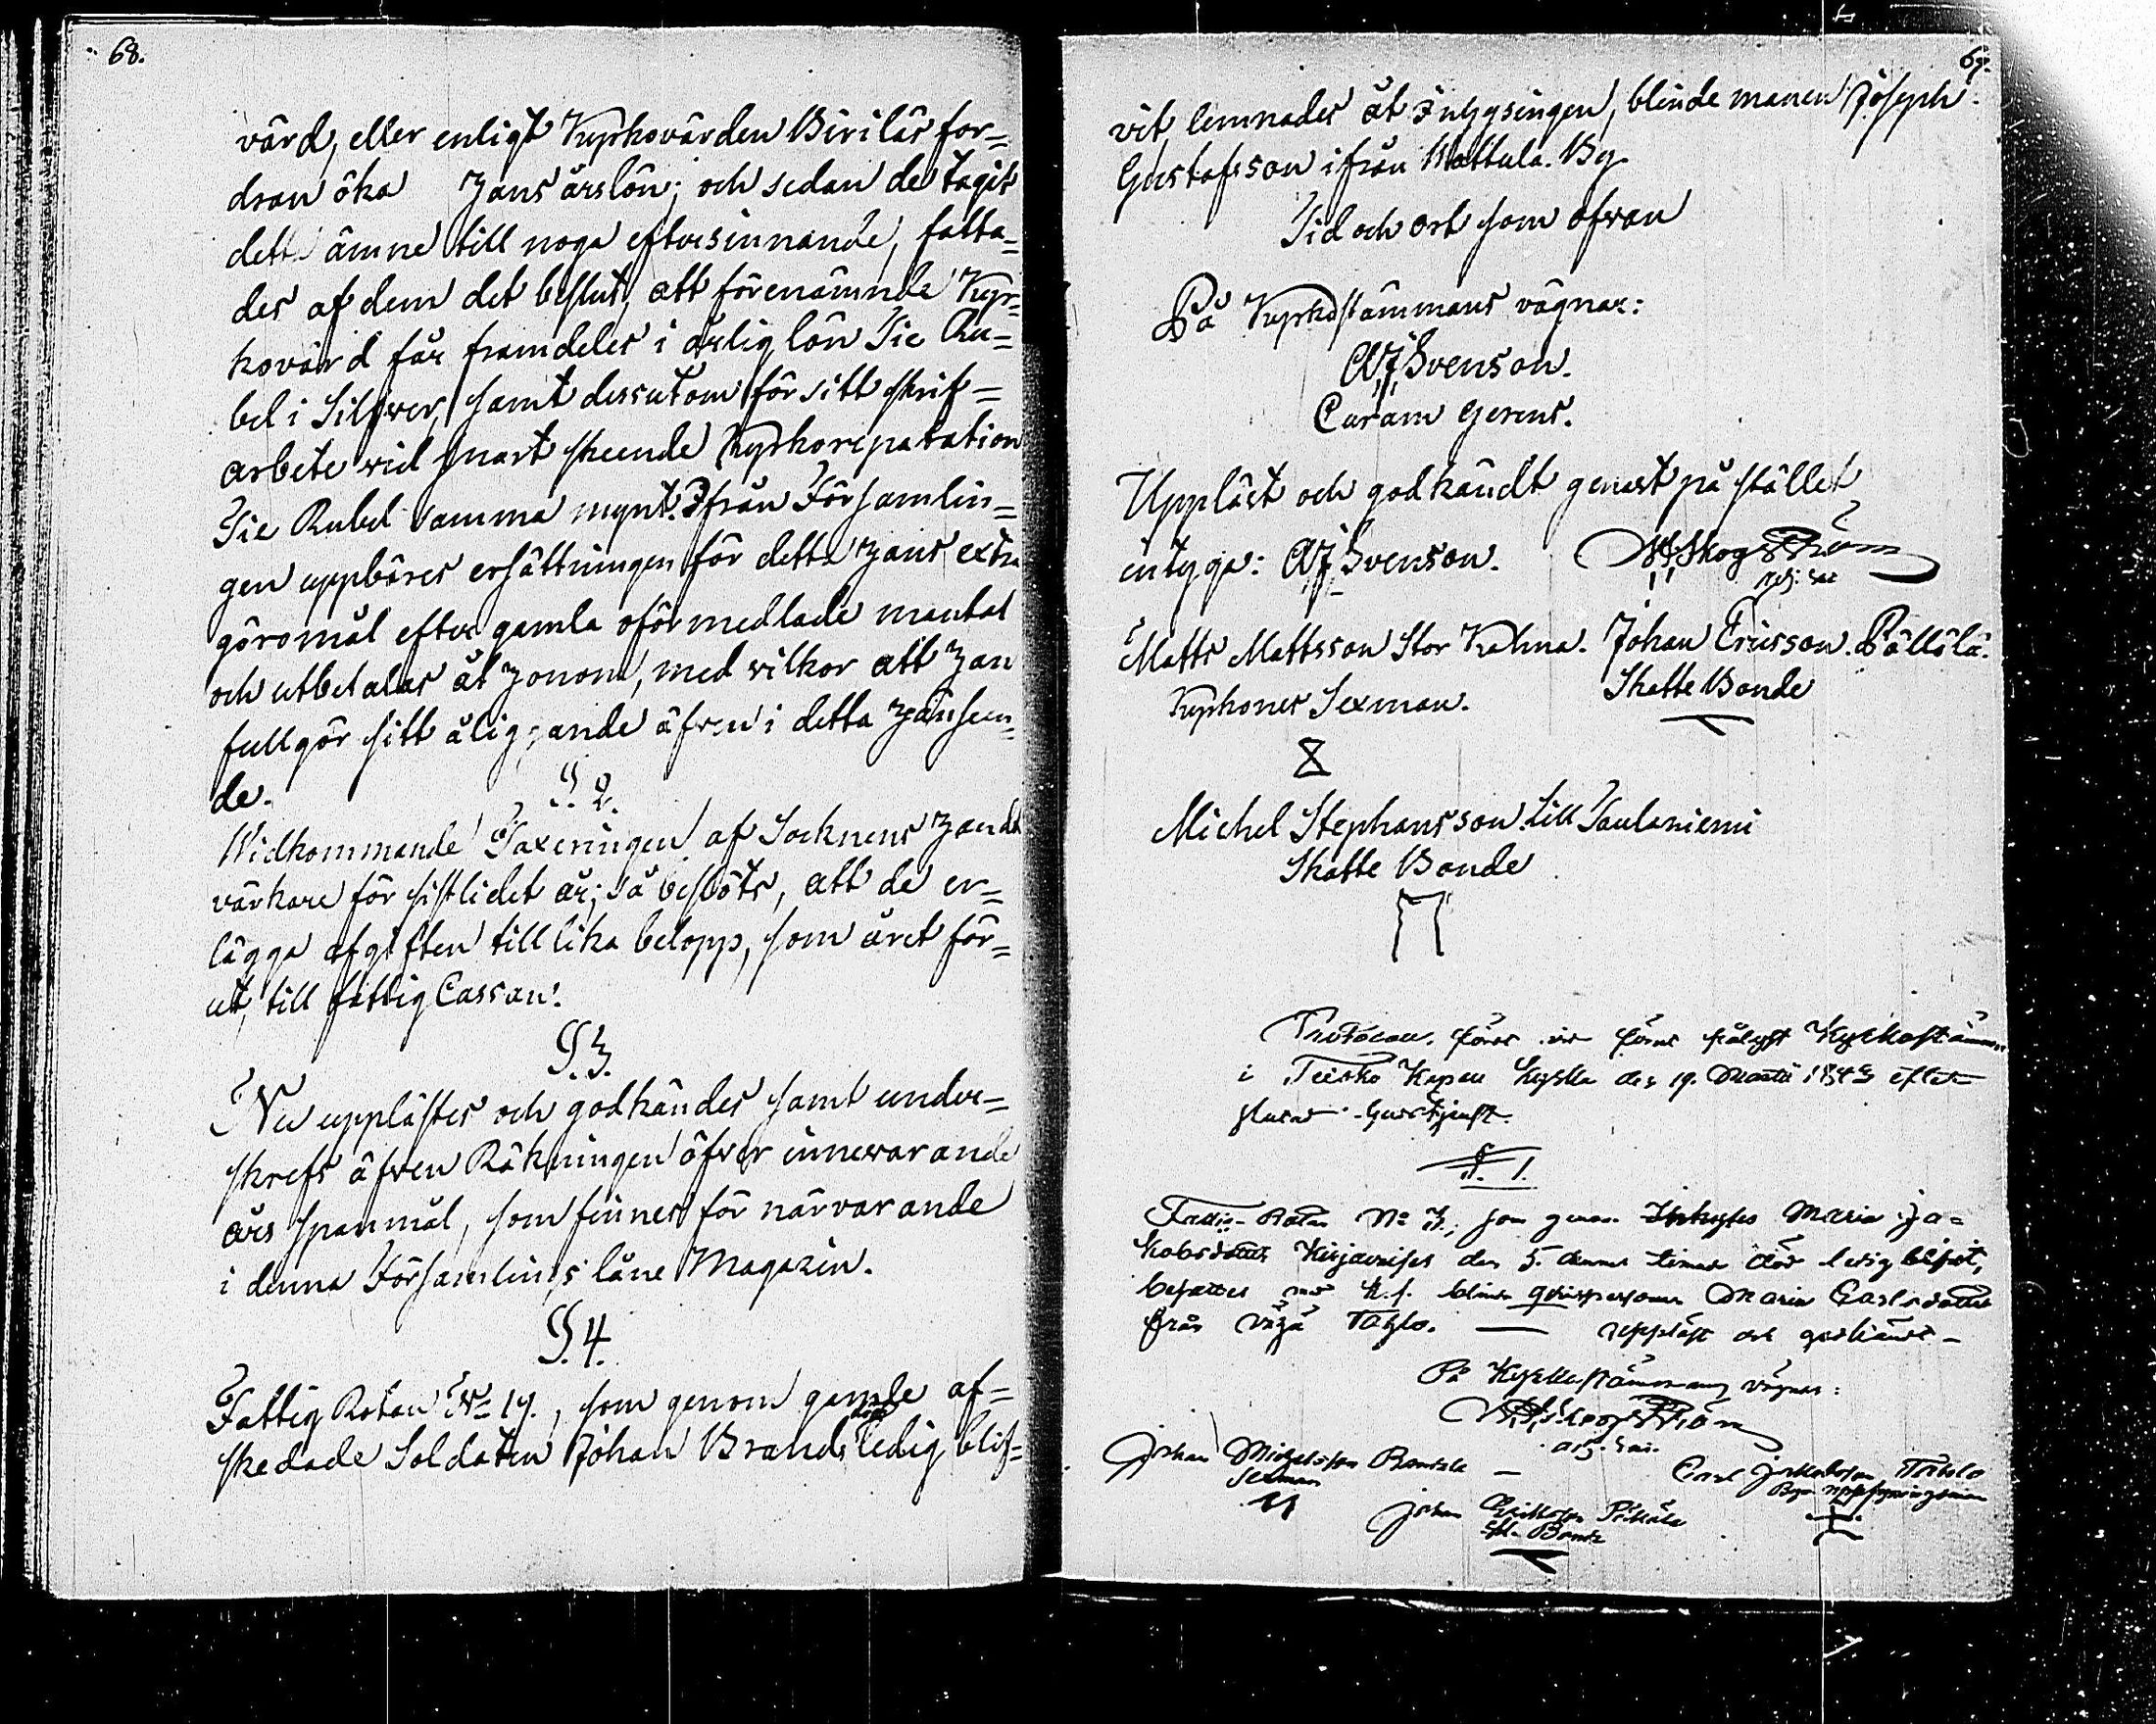 68.
värd, eller enligt Kyrkovärden Biriläs for=
dran öka hans årslön; och sedan de tagit
dett ämne till noga eftersinnande, fatta=
des af dem det beslut, att förenämnde Kyr=
kovärd får framdeles i årlig lön Tie Ru=
bel i Silfver, samt dessutom för sitt skrif=
arbete vid snart skeende Kyrkoreparation
Tie Rubel samma mynt. Ifrån Församlin=
gen uppbäres ersättningen för detta hans extra
göromål efter gamla oförmedlade mantal
och utbetalas åt honom, med vilkor att han
fullgör sitt åliggande äfven i detta hänseen=
de.
§. 2.
Widkommande Taxeringen af Socknens handt
värkare för sistlidet år; så beslöts, att de er=
lägga afgiften till lika belopp, som året för=
ut, till fattig Cassan.
§. 3.
Nu upplästes och godkändes samt under=
skrefs äfven Räkningen öfver innevarande
års spanmål, som finnes för närvarande
i denna Församlings låne Magazin.
§. 4.
Fattig Rotan No 19., som genom gamle af=
skedade Soldaten Johan Brands död ledig blif=
69.
vit lemnades åt Inhysingen, blinde manen Joseph
Gustafsson ifrån Wattula By.
Tid och ort som ofvan
På Kyrkostämmans vägnar:
AJ Svenson.
Curam Gerens.
Uppläst och godkändt genast på stället
intyga: AJ Svenson. Skogström
adj: sac
Matts Mattsson Stor Kahna. Johan Ericsson. Pällälä.
Kyrkones Sexman. Skatte Bonde
Michel Stephansson till Taulaniemi
Skatte Bonde
Protocoll, fördt vid förut pålyst Kyrkostämma
i Teisko Kapell Kyrka den 19. Martii 1843 efter
slutad Gudstjenst.
§. 1.
Fattig-Rotan No 3., som genom Inhyses Maria Ja=
kobsdotter Kirjavaises den 5. dennes timade död ledig blifvit,
besattes med blinda qvinspersonen Maria Carlsdotter
från Tahlo. — uppläst och godkändt —
På Kyrkostämmans vägnar:
Skogström
adj. sac.
Johan Michelsson — Carl Jakobsson Tahlo
Sexman
Johan Eriksson Pällälä
Sk. Bonde